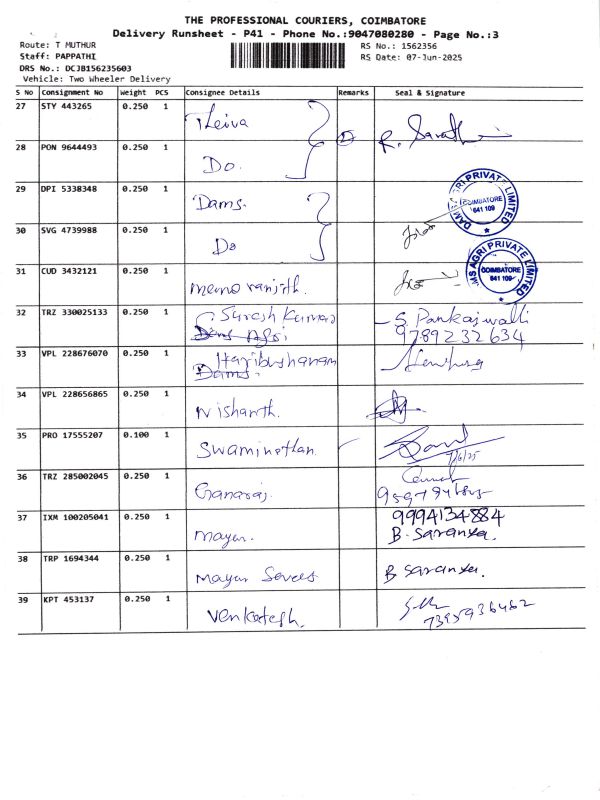 THE PROFESSIONAL COURIERS, COIMBATORE
Delivery Runsheet - P41 - Phone No.:9047080280 - Page No.:3
Route: T MUTHUR
RS No.: 1562356
Staff: PAPPATHI
RS Date: 07-Jun-2025
DRS No.: DCJB156235603
Vehicle: Two Wheeler Delivery
S No Consignment No Weight PCS Consignee Details Remarks Seal & Signature
27 STY 443265 0.250 1 Theiva
R. Sarathi
28 PON 9644493 0.250 1 Do.
29 DPI 5338348 0.250 1 Dams.
AGRI PRIVATE LIMITED
COIMBATORE
641 109
30 SVG 4739988 0.250 1 Do
31 CUD 3432121 0.250 1 memo ranjith.
MS AGRI PRIVATE LIMITED
COIMBATORE
641 109
32 TRZ 330025133 0.250 1 Suresh Kumar
S. Pankajwalli
9789232634
33 VPL 228676070 0.250 1 Haribushanam
Dams.
34 VPL 228656865 0.250 1 Nishanth.
35 PRO 17555207 0.100 1 Swaminathan
7/6/25
36 TRZ 285002045 0.250 1 Ganaraj
37 IXM 100205041 0.250 1 Mayur.
9994134884
B. Saranya.
38 TRP 1694344 0.250 1 Mayur
B Saranya.
39 KPT 453137 0.250 1 Venkatesh.